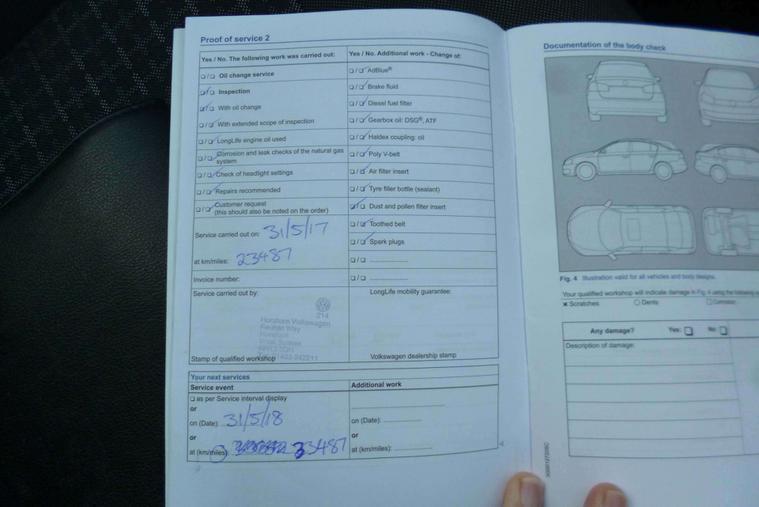 Proof of service 2
Yes / No. The following work was carried out:
❑ / ❑ Oil change service
❑ / ❑ Inspection
❑ / ❑ With oil change
❑ / ❑ With extended scope of inspection
❑ / ❑ LongLife engine oil used
❑ / ❑ Corrosion and leak checks of the natural gas
system
❑ / ❑ Check of headlight settings
❑ / ❑ Repairs recommended
❑ / ❑ Customer request
(this should also be noted on the order)
Service carried out on: 31/5/17
at km/miles: 23487
Invoice number:
Service carried out by:
214
Horsham Volkswagen
Stamp of qualified workshop
Yes / No. Additional work - Change of:
❑ / ❑ AdBlue®
❑ / ❑ Brake fluid
❑ / ❑ Diesel fuel filter
❑ / ❑ Gearbox oil: DSG®, ATF
❑ / ❑ Haldex coupling: oil
❑ / ❑ Poly V-belt
❑ / ❑ Air filter insert
❑ / ❑ Tyre filler bottle (sealant)
❑ / ❑ Dust and pollen filter insert
❑ / ❑ Toothed belt
❑ / ❑ Spark plugs
❑ / ❑
❑ / ❑
LongLife mobility guarantee:
Volkswagen dealership stamp
Your next services
Service event
❑ as per Service interval display
or
on (Date): 31/5/18
or
at (km/miles): 33487
Additional work
on (Date):
or
at (km/miles):
Documentation of the body check
Fig. 4 Illustration valid for all vehicles and body designs.
Your qualified workshop will indicate damage in Fig. 4 using the following
✖ Scratches O Dents ❑
Any damage? Yes: ❑ No ❑
Description of damage: